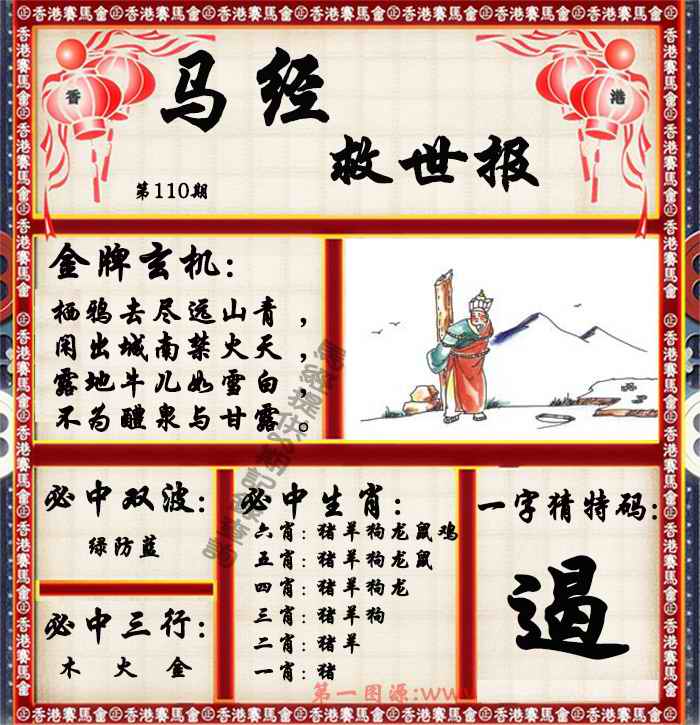 香港賽馬會
香
港
马经
救世报
第110期
金牌玄机：
栖鸦去尽远山青，
闲出城南禁火天，
露地牛儿如雪白，
不为醴泉与甘露。
必中双波：
绿防蓝
必中三行：
木 火 金
必中生肖：
六肖：猪羊狗龙鼠鸡
五肖：猪羊狗龙鼠
四肖：猪羊狗龙
三肖：猪羊狗
二肖：猪羊
一肖：猪
一字猜特码：
遏
第一图源:www.